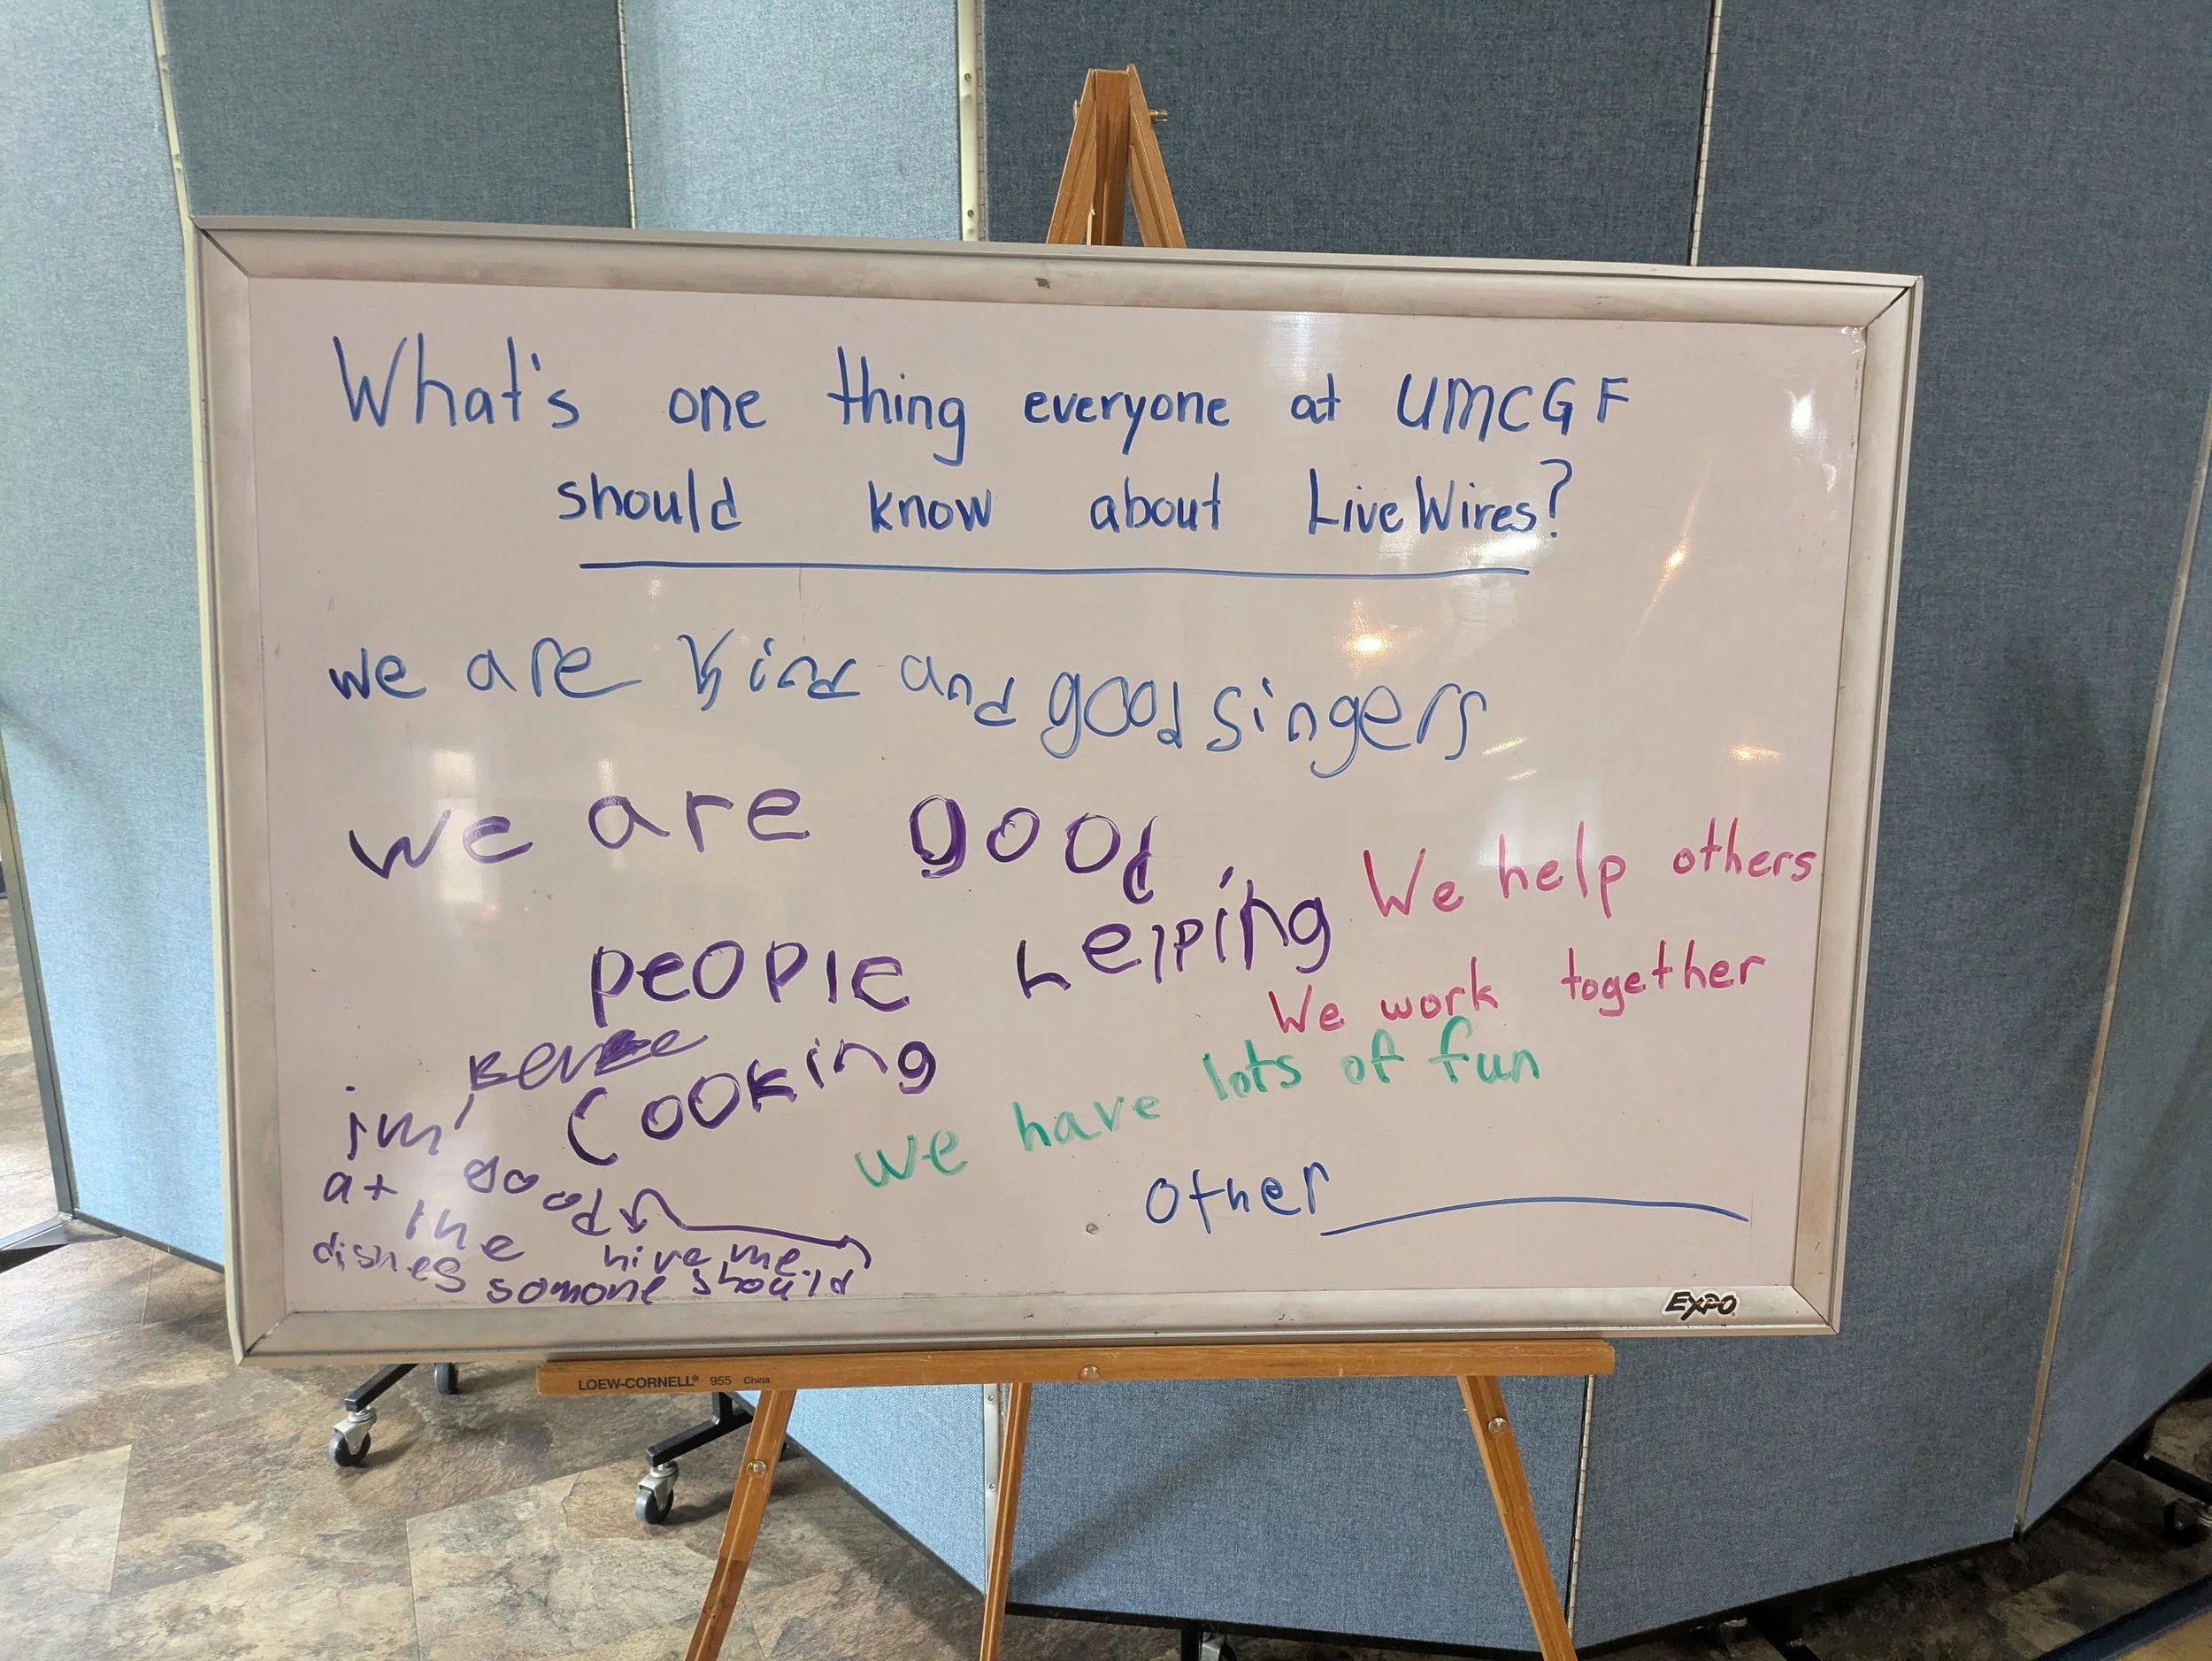 What's one thing everyone at UMCGF
should know about LiveWires?
we are kind and good singers
we are good
people helping
We help others
We work together
cooking
we have lots of fun
im
good
at the
dishes
hire me
somone should
other
EXPO
LOEW-CORNELL® 955 China